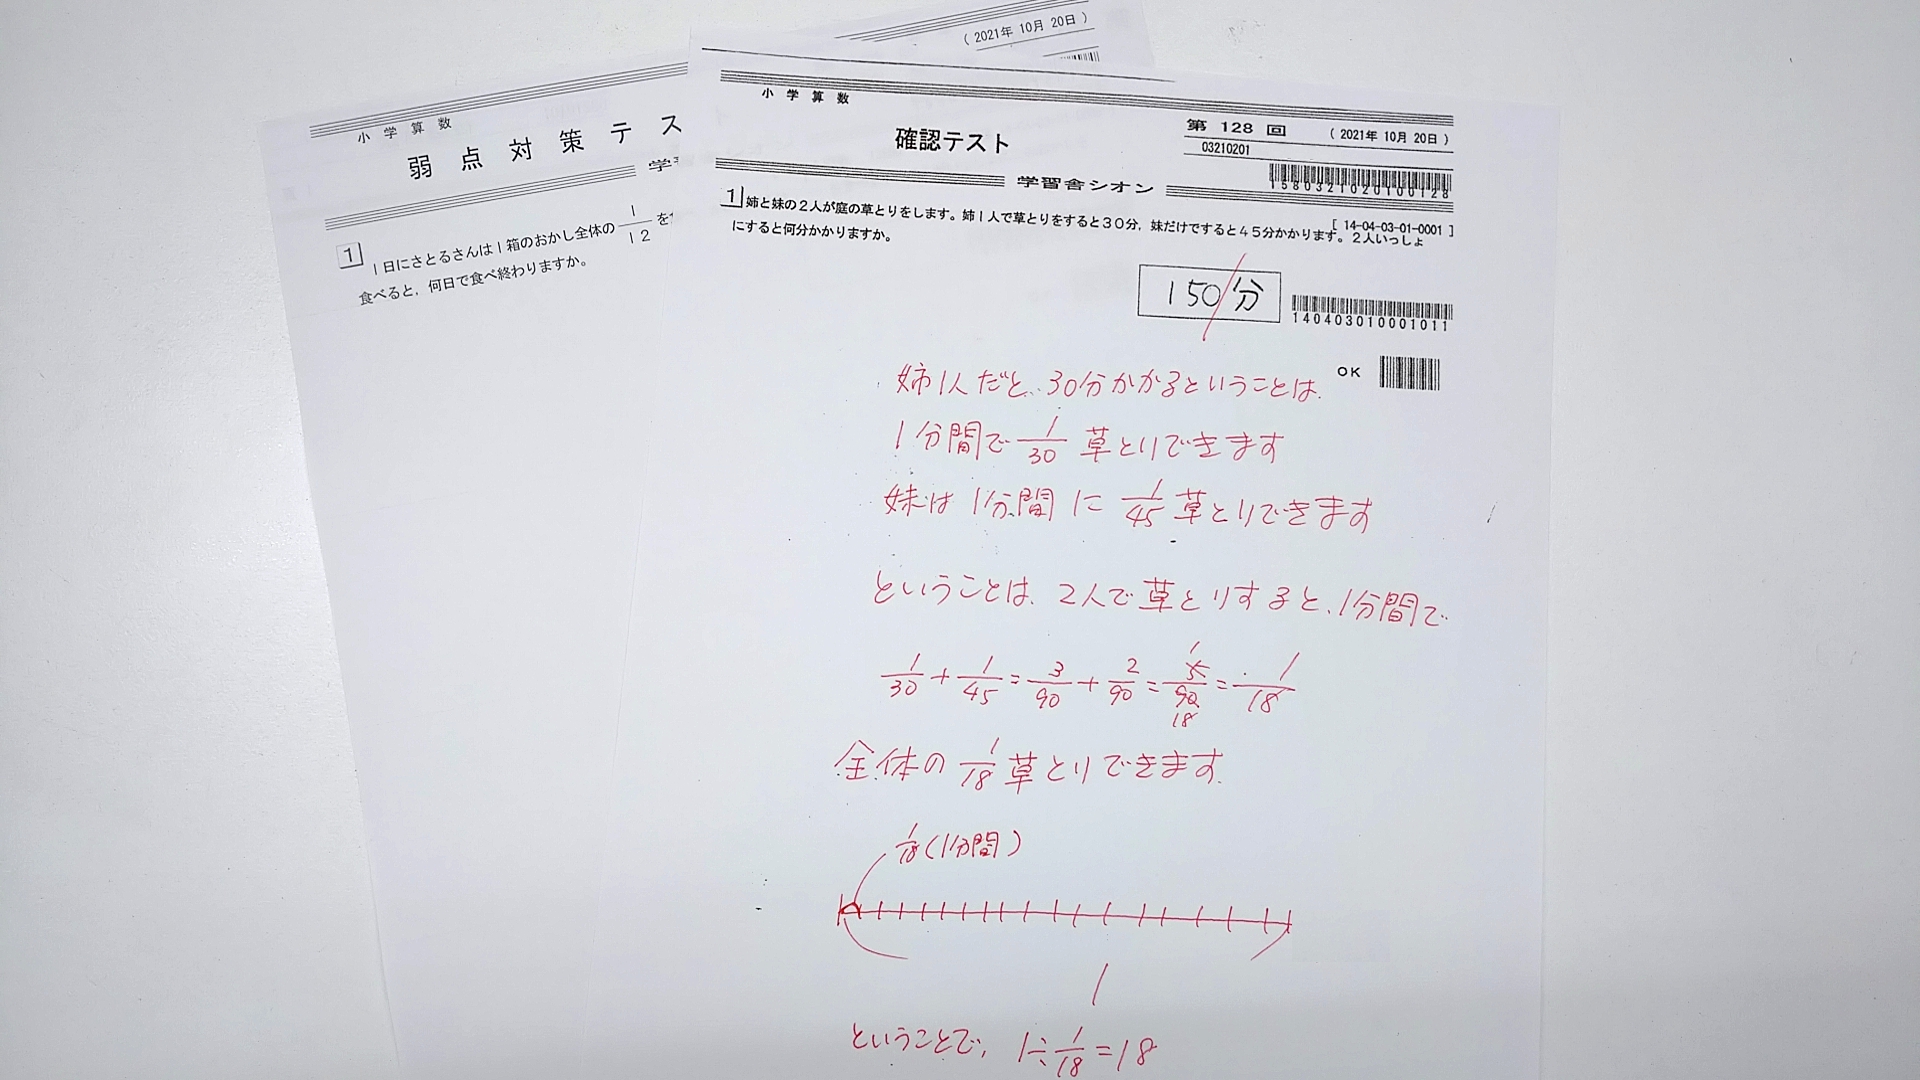 ( 2021年 10月 20日 )
小 学 算 数
弱 点 対 策 テ ス
学
1 1日にさとるさんは1箱のおかし全体の 1/12 を
食べると，何日で食べ終わりますか。
小 学 算 数
確認テスト
第 128 回 ( 2021年 10月 20日 )
03210201
1580321020100128
学習舎シオン
[ 14-04-03-01-0001 ]
1 姉と妹の２人が庭の草とりをします。姉１人で草とりをすると３０分，妹だけですると４５分かかります。２人いっしょ
にすると何分かかりますか。
150分
140403010001011
OK
姉1人だと、30分かかるということは、
1分間で 1/30 草とりできます
妹は 1分間に 1/45 草とりできます
ということは、2人で草とりすると、1分間で
1/30 + 1/45 = 3/90 + 2/90 = 5/90 = 1/18
1
18
全体の 1/18 草とりできます。
1/18 (1分間)
1
ということで、 1÷1/18=18